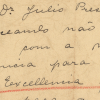 Dr. Julio Pres
ceando não
com a
ncia para
Excellencia